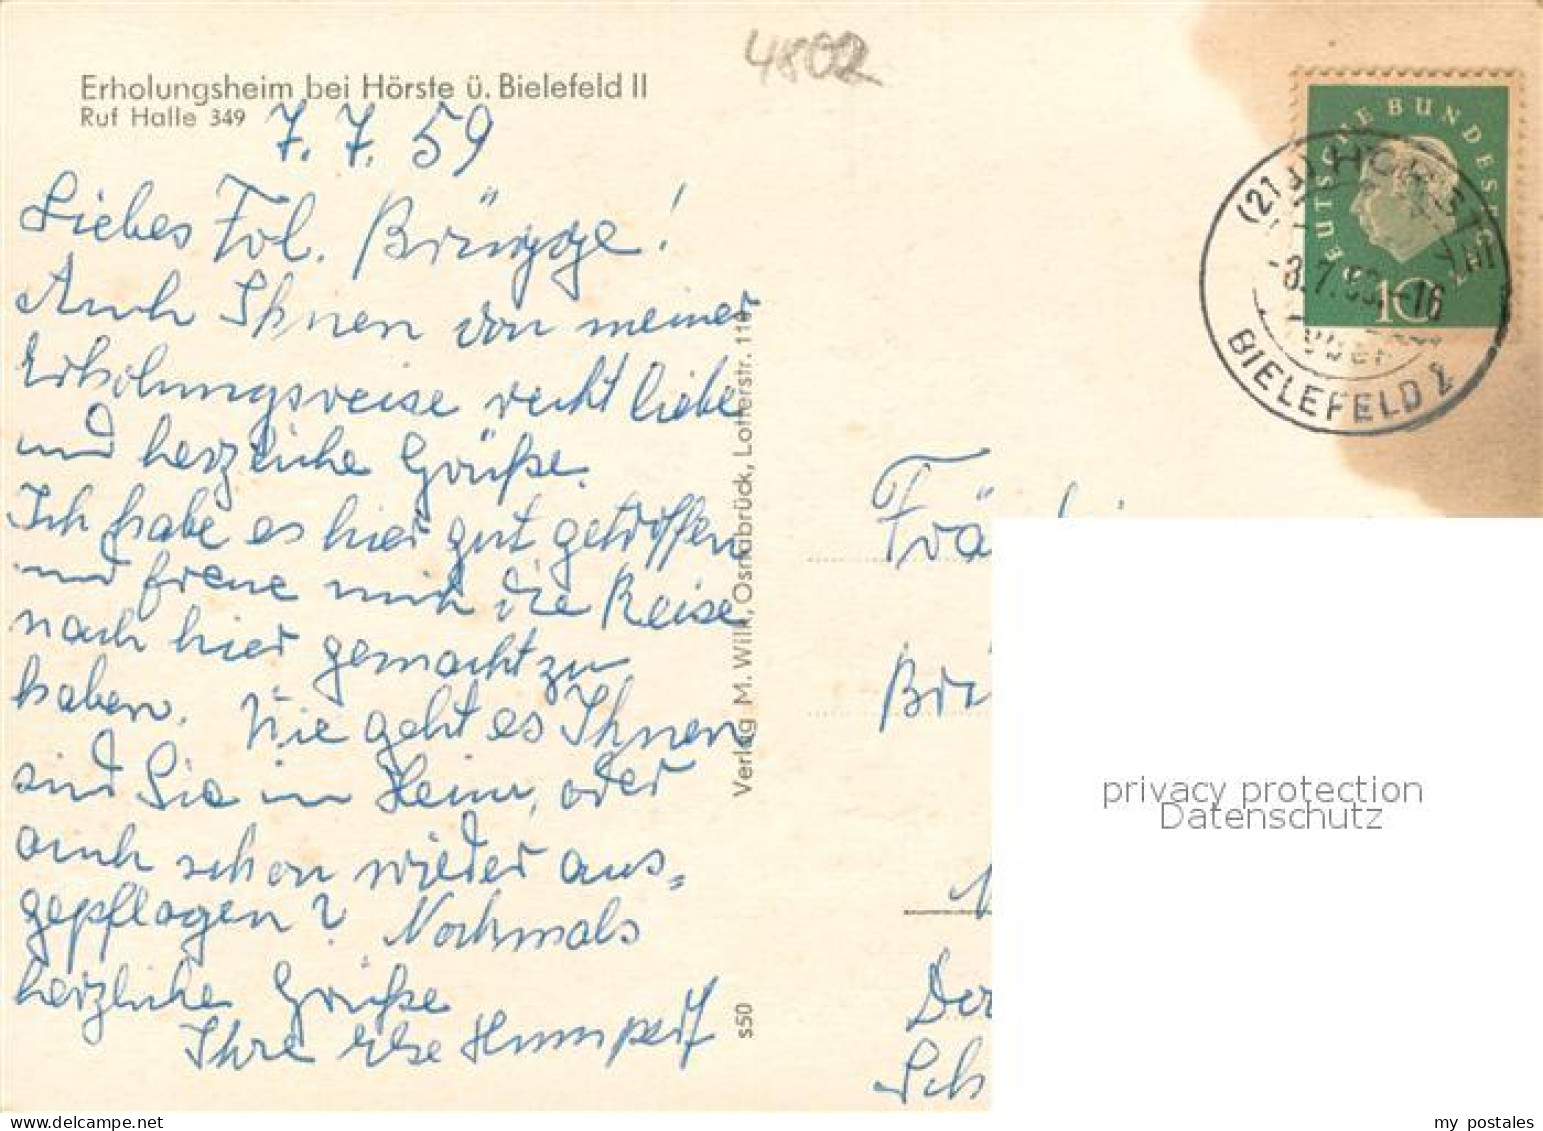 4802
Erholungsheim bei Hörste ü. Bielefeld II
Ruf Halle 349
7. 7. 59
Liebes Frl. Brügge!
Auch Ihnen von meiner
Erholungsreise recht liebe
und herzliche Grüße.
Ich habe es hier gut getroffen
und freue mich die Reise
nach hier gemacht zu
haben. Wie geht es Ihnen
sind Sie im Heim, oder
auch schon wieder aus-
geflogen? Nochmals
herzliche Grüße
Ihre Else
Verlag M. Wilk, Osnabrück, Lotterstr.
s50
DEUTSCHE BUNDESPOST
10
(21a) HÖRSTE
-8.7.59.-16
über
BIELEFELD 2
Frä
Brü
Dor
Sch
privacy protection
Datenschutz
my postales